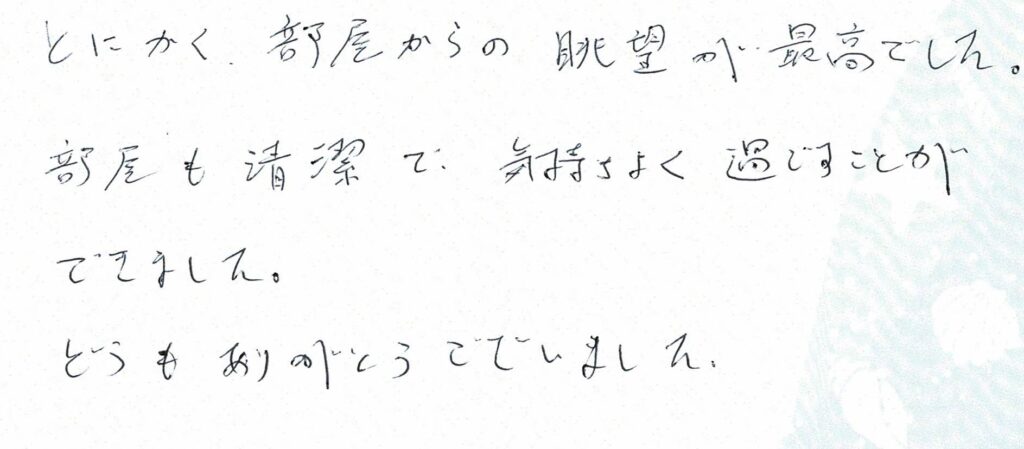 とにかく、部屋からの眺望が最高でした。
部屋も清潔で、気持ちよく過ごすことが
できました。
どうもありがとうございました。